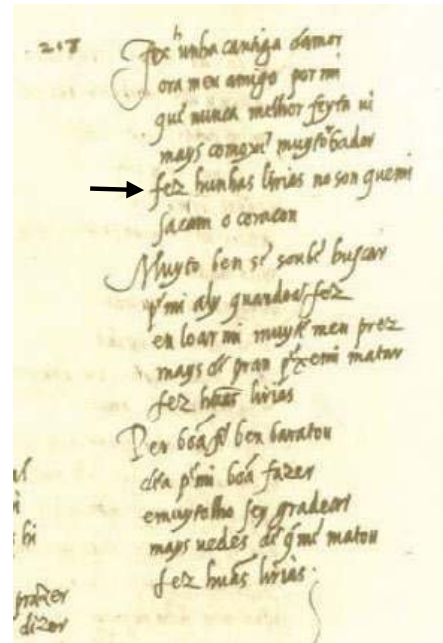 218
Fez hunha cantiga damor
ora meu amigo por mi
que nunca melhor feyta ui
mays como xe muyto trobador
fez hunhas lirias no son quemi
sacam o coraçon
Muyto ben se soube buscar
por mi aly quando a fez
en loar mi muyte meu prez
mays de pran por xemi matar
fez huas lirias
Per boa fe ben baratou
dea por mi boa fazer
emuytolho sey gradeçer
mays uedes de que me matou
fez huas lirias.
hi
prazer
dizer